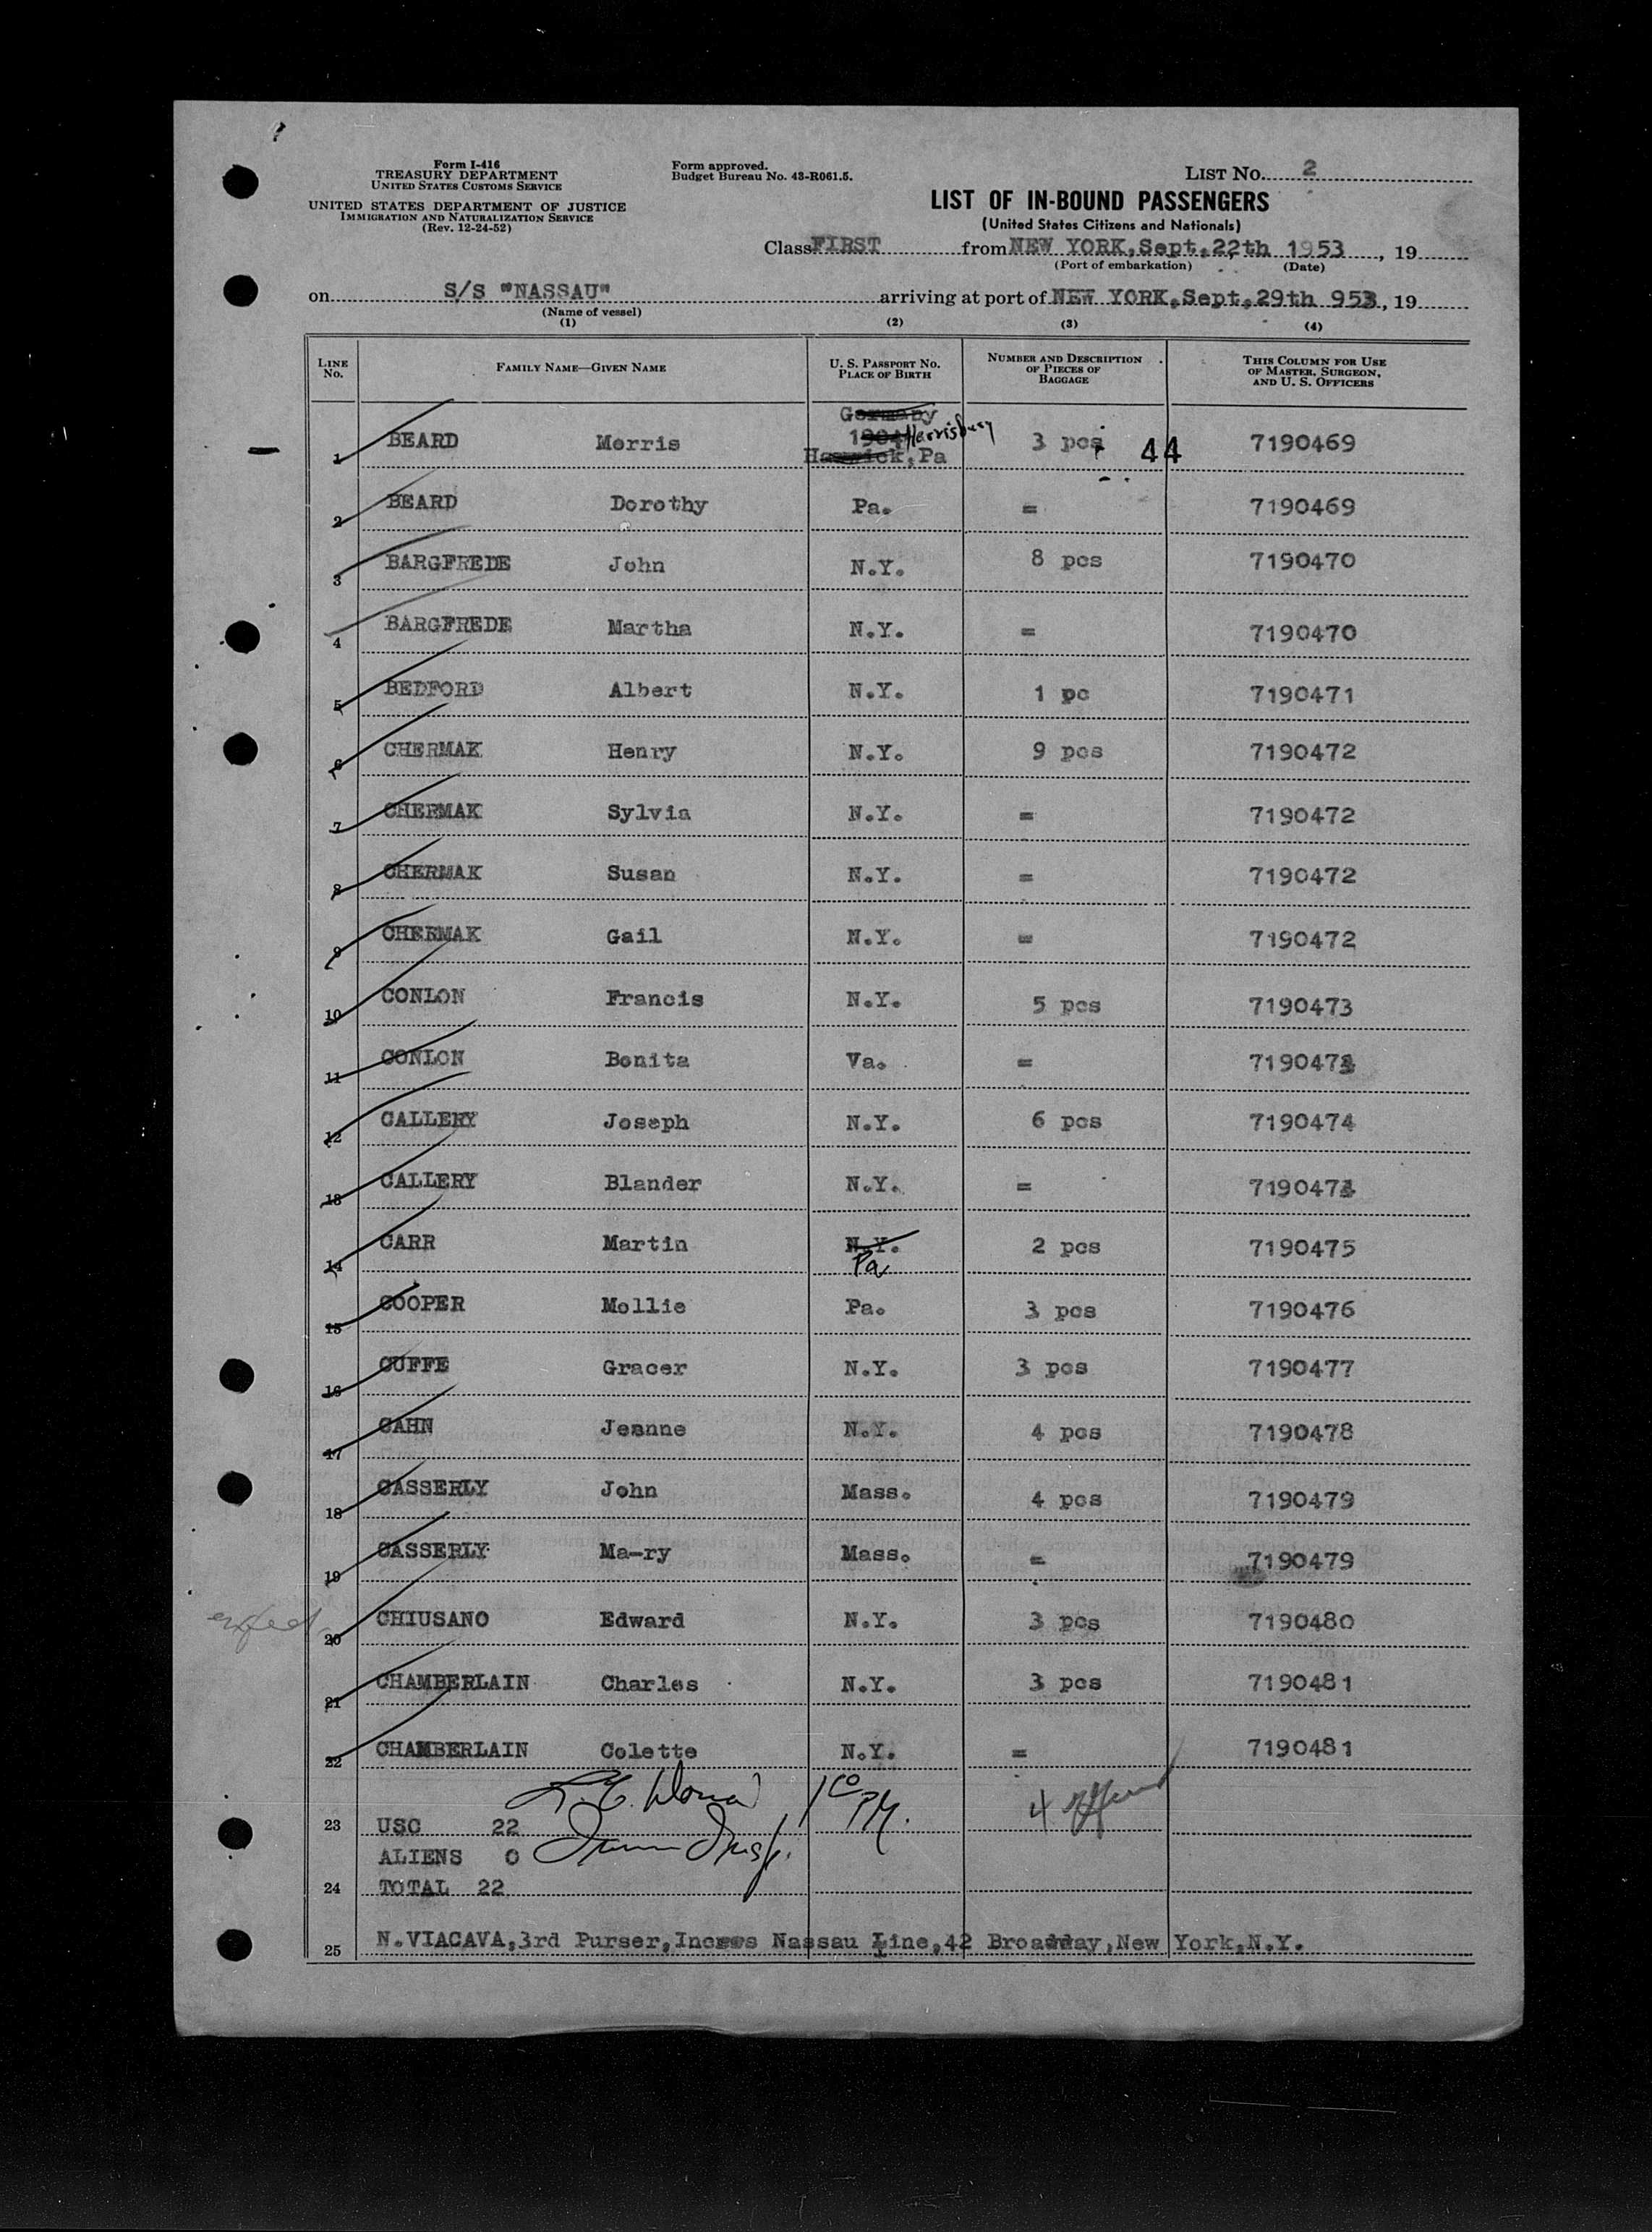 Form I-416
TREASURY DEPARTMENT
UNITED STATES CUSTOMS SERVICE
UNITED STATES DEPARTMENT OF JUSTICE
IMMIGRATION AND NATURALIZATION SERVICE
(Rev. 12-24-52)
Form approved.
Budget Bureau No. 43-R061.5.
LIST No. 2
LIST OF IN-BOUND PASSENGERS
(United States Citizens and Nationals)
Class FIRST from NEW YORK,Sept,22th 1953, 19
(Port of embarkation) (Date)
on S/S "NASSAU" arriving at port of NEW YORK,Sept,29th 953, 19
(Name of vessel)
(1) (2) (3) (4)
LINE No. FAMILY NAME—GIVEN NAME U. S. PASSPORT No. PLACE OF BIRTH NUMBER AND DESCRIPTION OF PIECES OF BAGGAGE THIS COLUMN FOR USE OF MASTER, SURGEON, AND U. S. OFFICERS
Germany
1904 Harrisburg
1 BEARD Morris Pa 3 pcs 44 7190469
2 BEARD Dorothy Pa. = 7190469
3 BARGFREDE John N.Y. 8 pcs 7190470
4 BARGFREDE Martha N.Y. = 7190470
5 BEDFORD Albert N.Y. 1 pc 7190471
6 CHERMAK Henry N.Y. 9 pcs 7190472
7 CHERMAK Sylvia N.Y. = 7190472
8 CHERMAK Susan N.Y. = 7190472
9 CHERMAK Gail N.Y. = 7190472
10 CONLON Francis N.Y. 5 pcs 7190473
11 CONLON Bonita Va. = 7190473
12 CALLERY Joseph N.Y. 6 pcs 7190474
13 CALLERY Blander N.Y. = 7190474
14 CARR Martin N.Y. Pa 2 pcs 7190475
15 COOPER Mollie Pa. 3 pcs 7190476
16 CUFFE Gracer N.Y. 3 pcs 7190477
17 CAHN Jeanne N.Y. 4 pcs 7190478
18 CASSERLY John Mass. 4 pcs 7190479
19 CASSERLY Ma-ry Mass. = 7190479
20 CHIUSANO Edward N.Y. 3 pcs 7190480
21 CHAMBERLAIN Charles N.Y. 3 pcs 7190481
22 CHAMBERLAIN Colette N.Y. = 7190481
23 USC 22
ALIENS 0
24 TOTAL 22
25 N.VIACAVA,3rd Purser,Incres Nassau Line,42 Broadway,New York,N.Y.